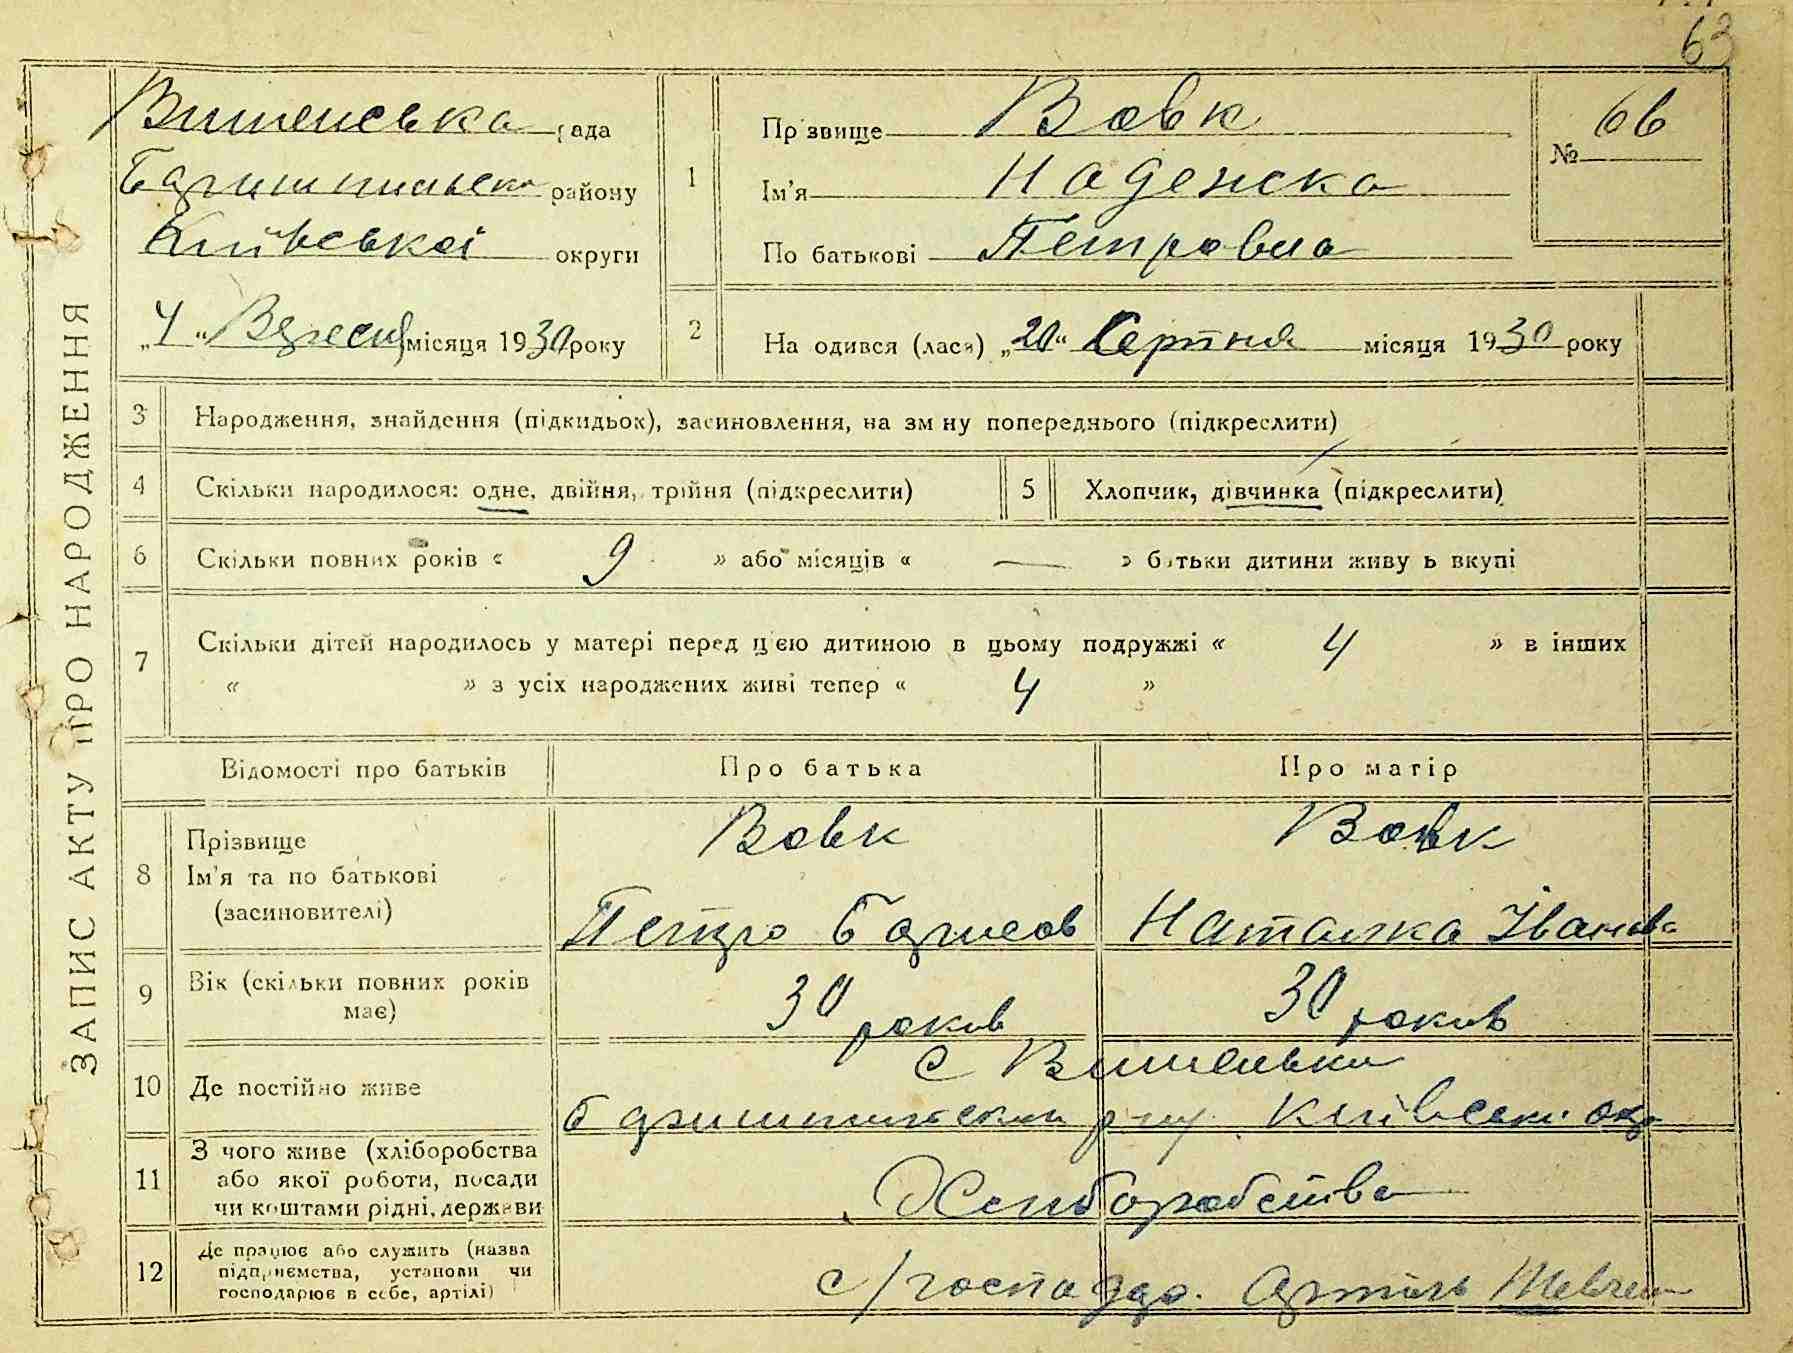 63
ЗАПИС АКТУ ПРО НАРОДЖЕННЯ
Вишенська рада
Баришпильск району
Київської округи
„4“ Вересня місяця 1930 року
1
Прізвище Вовк
Ім'я Надежка
По батькові Петровна
№ 66
2
Народився (лася) „20“ Серпня місяця 1930 року
3 Народження, знайдення (підкидьок), засиновлення, на зміну попереднього (підкреслити)
4 Скільки народилося: одне, двійня, трійня (підкреслити)
5 Хлопчик, дівчинка (підкреслити)
6 Скільки повних років « 9 » або місяців « — » батьки дитини живуть вкупі
7 Скільки дітей народилось у матері перед цією дитиною в цьому подружжі « 4 » в інших
« » з усіх народжених живі тепер « 4 »
Відомості про батьків Про батька Про матір
8 Прізвище
Ім'я та по батькові
(засиновителі)
Вовк
Петро Борисов
Вовк
Наталка Іванов
9 Вік (скільки повних років
має)
30 роков
30 роков
10 Де постійно живе
с Вишеньки
Баришпильским р-ну. Київськ окр
11 З чого живе (хліборобства
або якої роботи, посади
чи коштами рідні, держави
Хлиборобства
12 Де працює або служить (назва
підприємства, установи чи
господарює в себе, артілі)
с/господар. Артиль Шевчен